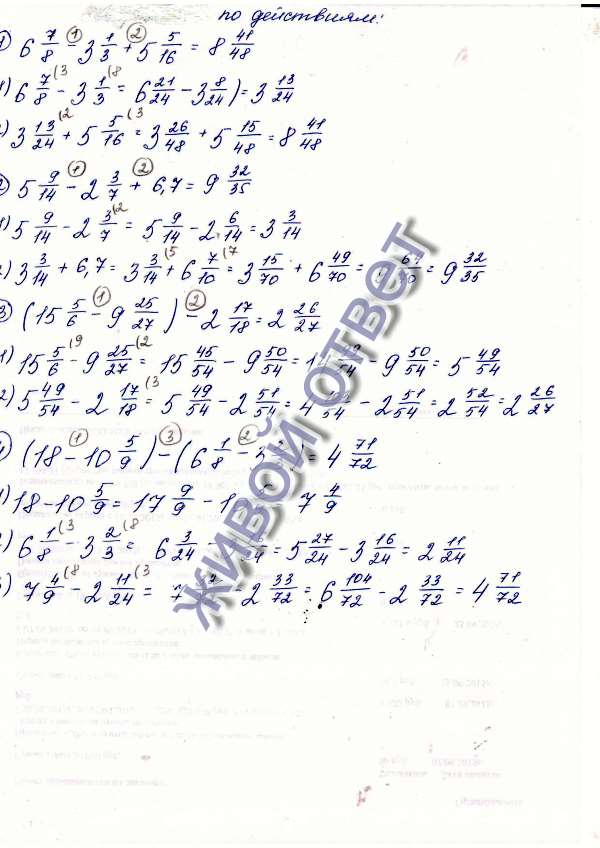 по действиям:
6 7/8 - 3 1/3 + 5 5/16 = 8 41/48
6 7/8 - 3 1/3 = 6 21/24 - 3 8/24) = 3 13/24
3 13/24 + 5 5/16 = 3 26/48 + 5 15/48 = 8 41/48
5 9/14 - 2 3/7 + 6,7 = 9 32/35
5 9/14 - 2 3/7 = 5 9/14 - 2 6/14 = 3 3/14
3 3/14 + 6,7 = 3 3/14 + 6 7/10 = 3 15/70 + 6 49/70 = = 9 32/35
3 (15 5/6 - 9 25/27) - 2 17/18 = 2 26/27
1) 15 5/6 - 9 25/27 = 15 45/54 - 9 50/54 = - 9 50/54 = 5 49/54
2) 5 49/54 - 2 17/18 = 5 49/54 - 2 51/54 = 4 - 2 51/54 = 2 52/54 = 2 26/27
(18 - 10 5/9) - (6 1/8 - ) = 4 71/72
18 - 10 5/9 = 17 9/9 - 7 4/9
6 1/8 - 3 2/3 = 6 3/24 = 5 27/24 - 3 16/24 = 2 11/24
7 4/9 - 2 11/24 = - 2 33/72 = 6 104/72 - 2 33/72 = 4 71/72
ЖИВОЙ ОТВЕТ